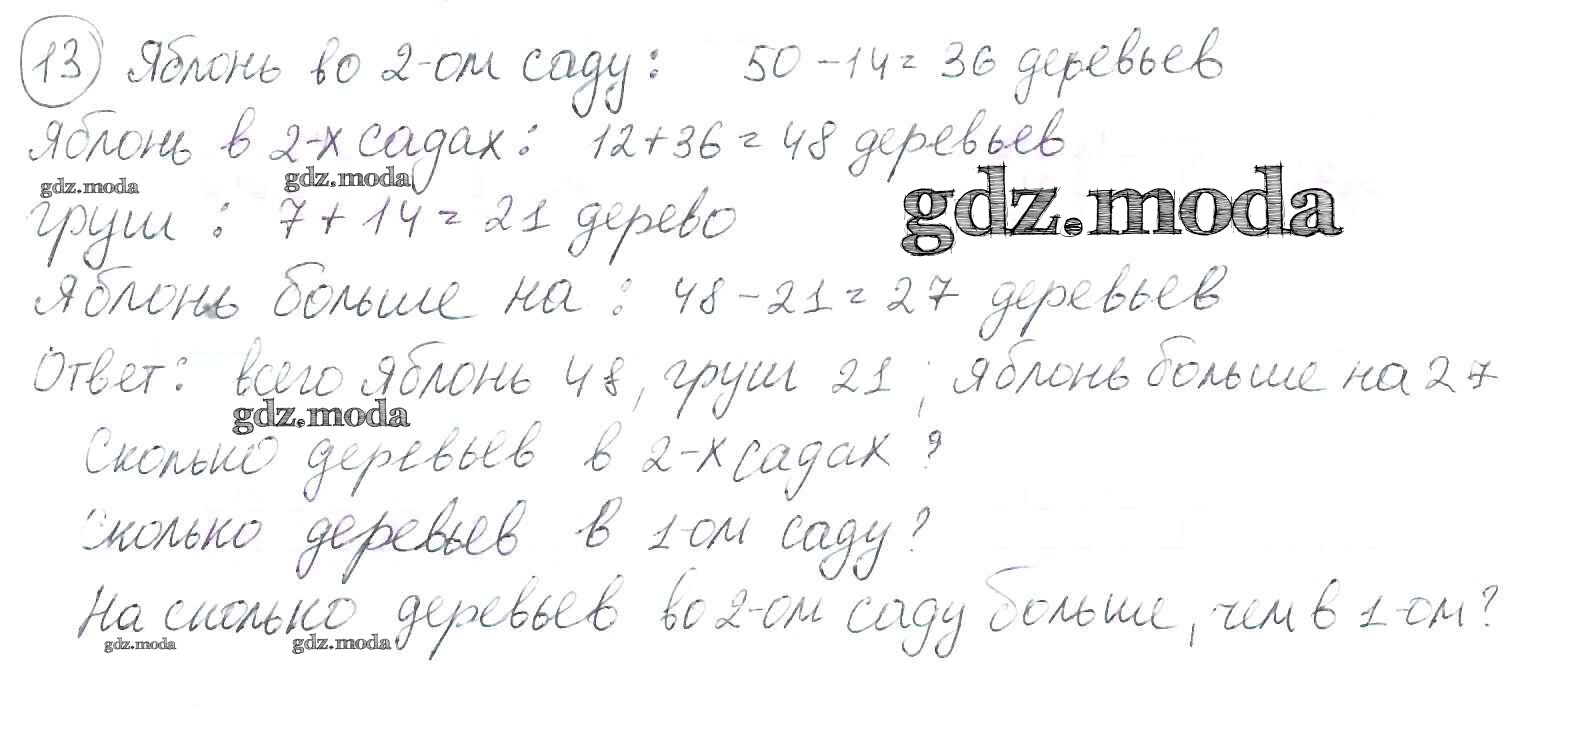 13 Яблонь во 2-ом саду: 50-14=36 деревьев
Яблонь в 2-х садах: 12+36=48 деревьев
gdz.moda gdz.moda gdz.moda
груш: 7+14=21 дерево
Яблонь больше на: 48-21=27 деревьев
Ответ: всего яблонь 48, груш 21; яблонь больше на 27
gdz.moda
Сколько деревьев в 2-х садах?
Сколько деревьев в 1-ом саду?
На сколько деревьев во 2-ом саду больше, чем в 1-ом?
gdz.moda gdz.moda